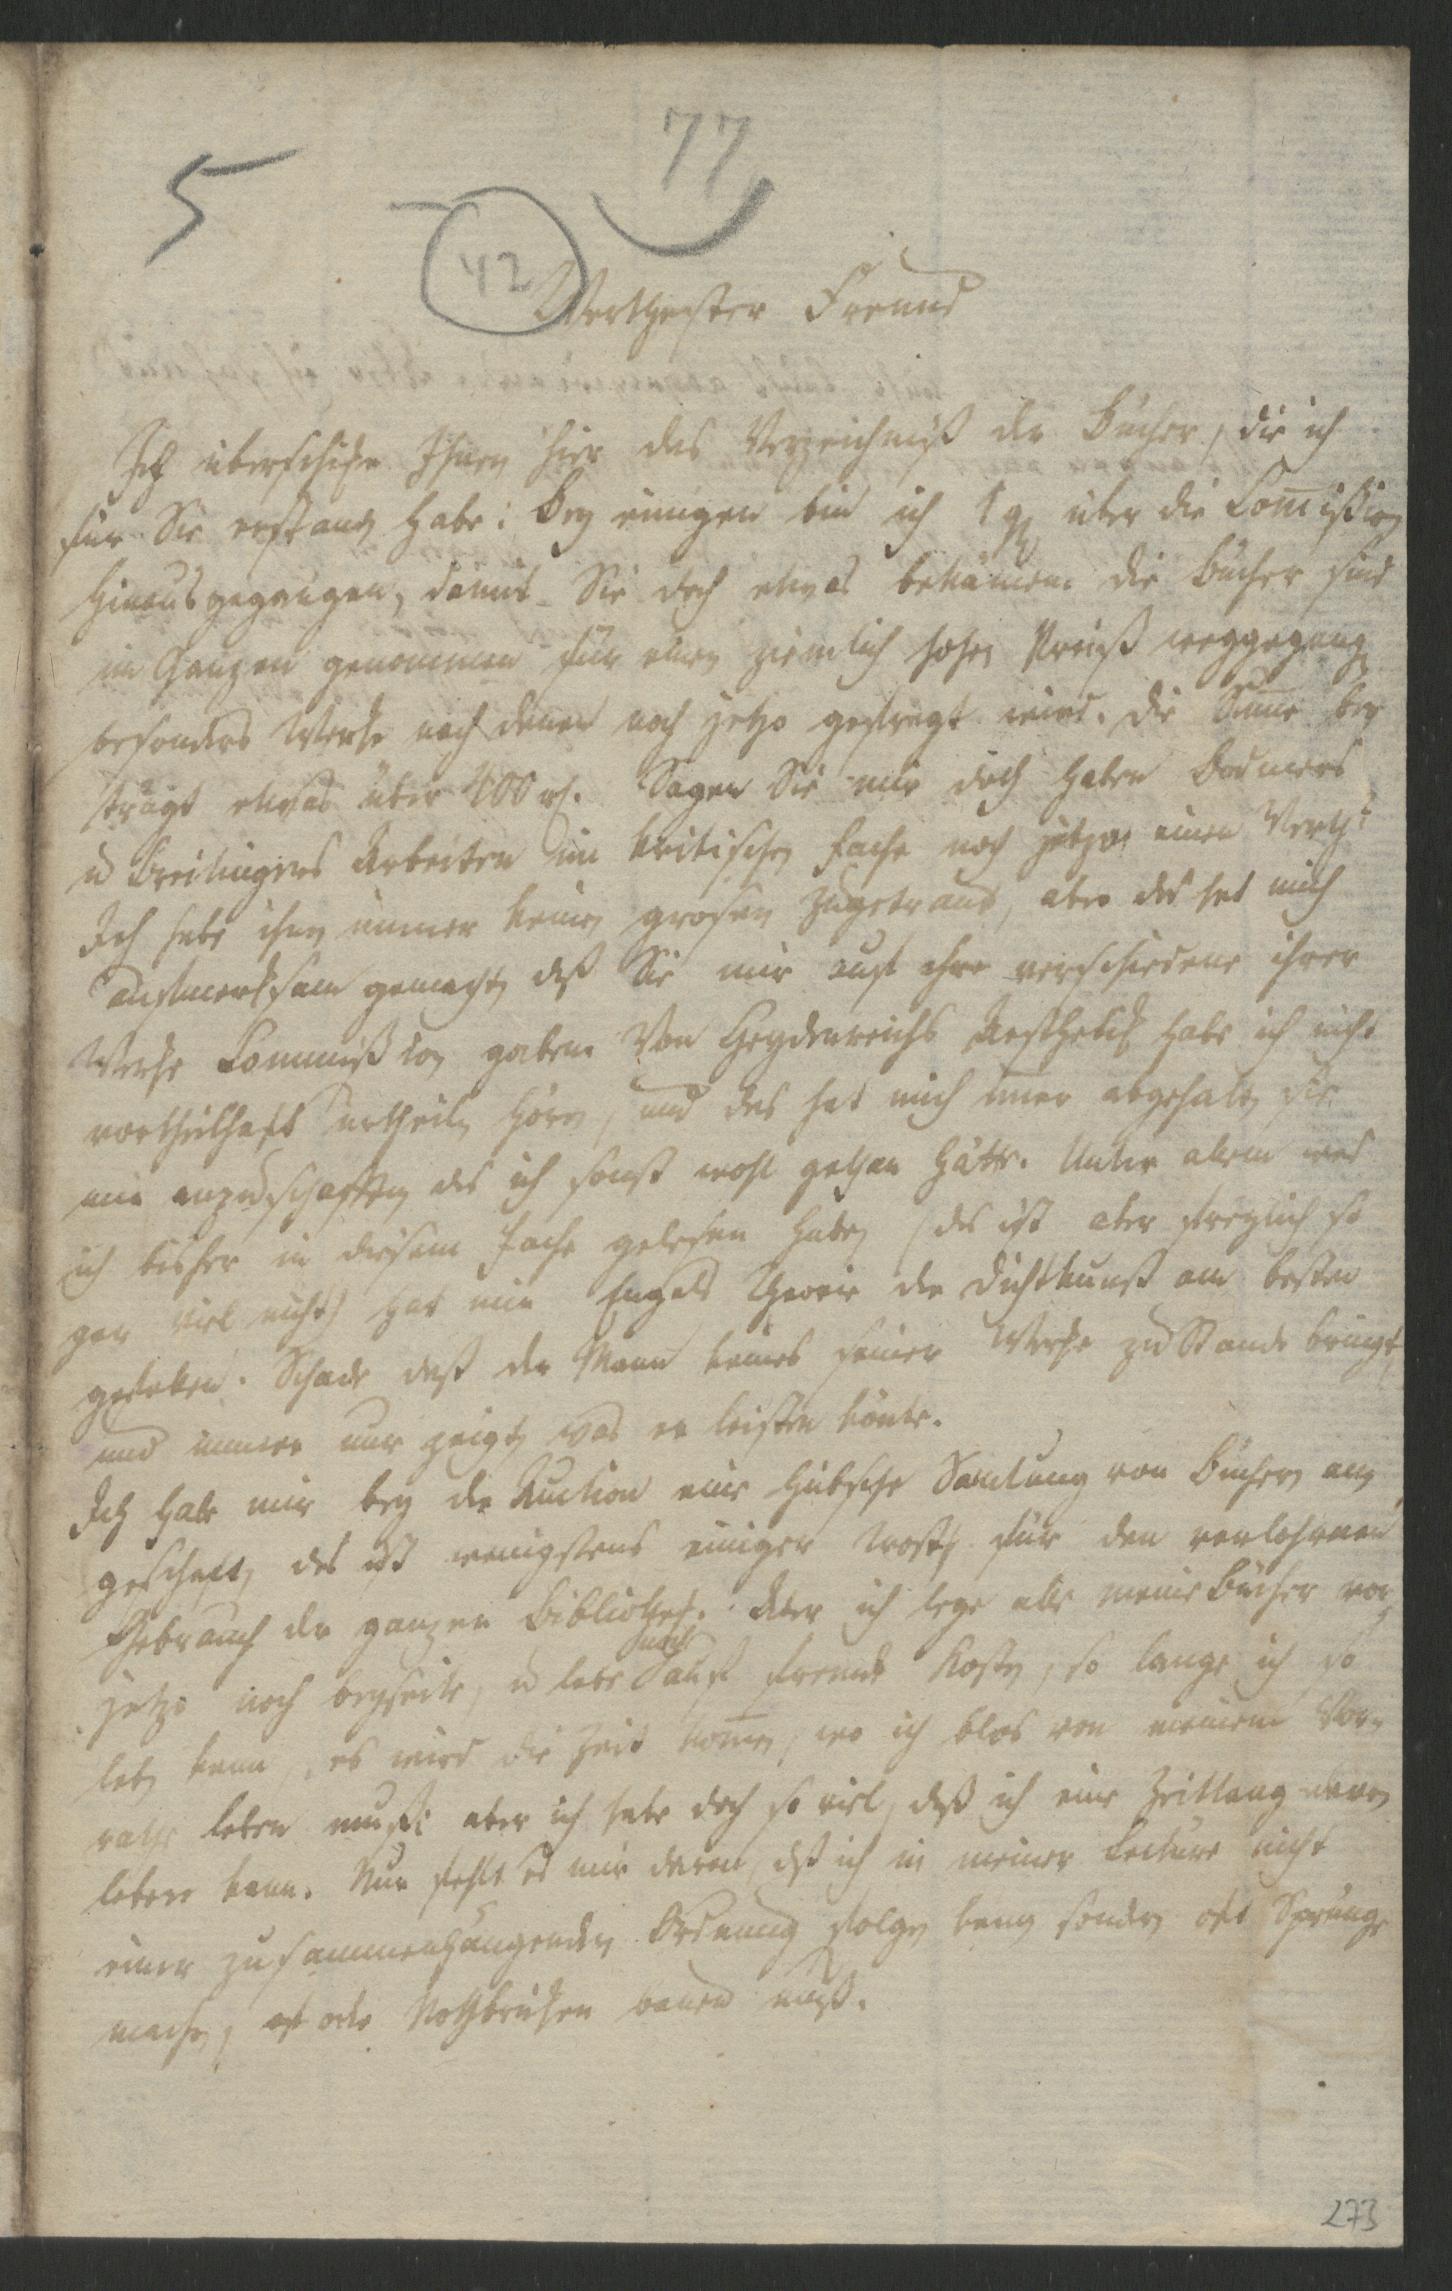 77
5
42
Werthester Freund
Ich überschicke Ihnen hier das Verzeichniß der Bücher, die ich
für Sie erstanden habe: Bey einigen bin ich 1 g über die Commißion
hinausgegangen, damit Sie doch etwas bekämen. die Bücher sind
im Ganzen genommen für einen ziemlich hohen Preiß weggegangen
besonders Werke nach denen noch jetzo gefragt wird. die Summe be
trägt etwas über 400 rh. Sagen Sie mir doch haben Bodmers
u Breitingers Arbeiten im kritischen Fache noch jetzo einen Werth?
Ich habe ihnen immer keinen grosen zugetraut, aber das hat mich
aufmerksam gemacht, daß Sie mir auf ihre verschiedene ihrer
Werke Commißion gaben. Von Heydenreichs Aesthetik habe ich nicht
vortheilhaft urtheilen hören, und das hat mich immer abgehalten sie
mir anzuschaffen das ich sonst wohl gethan hätte. Unter allem was
ich bisher in diesem Fache gelesen habe, (das ist aber freylich so
gar viel nicht) hat mir Engels Theorie der Dichtkunst am besten
gefallen. Schade daß der Mann keines seiner Werke zu Stande bringt,
und immer nur zeigt, was er leisten könte.
Ich habe mir bey der Auction eine hübsche Samlung von Büchern an
geschaft, das ist wenigstens einiger Trost für den verlohrnen
Gebrauch der ganzen Bibliothek. Aber ich lege alle meine Bücher vor
jetzo noch beyseite, u lebe auf fremde Kosten, so lange ich so
leben kann, es wird die Zeit kommen, wo ich blos von meinem Vor
rathe leben muß: aber ich habe doch so viel, daß ich eine Zeitlang davon
leben kann. Nur fehlt es mir daran, daß ich in meiner Lecture nicht
einer zusammenhängenden Ordnung folgen kann sondern oft Sprünge
machen, oft oder Nothbrücken bauen muß.
273